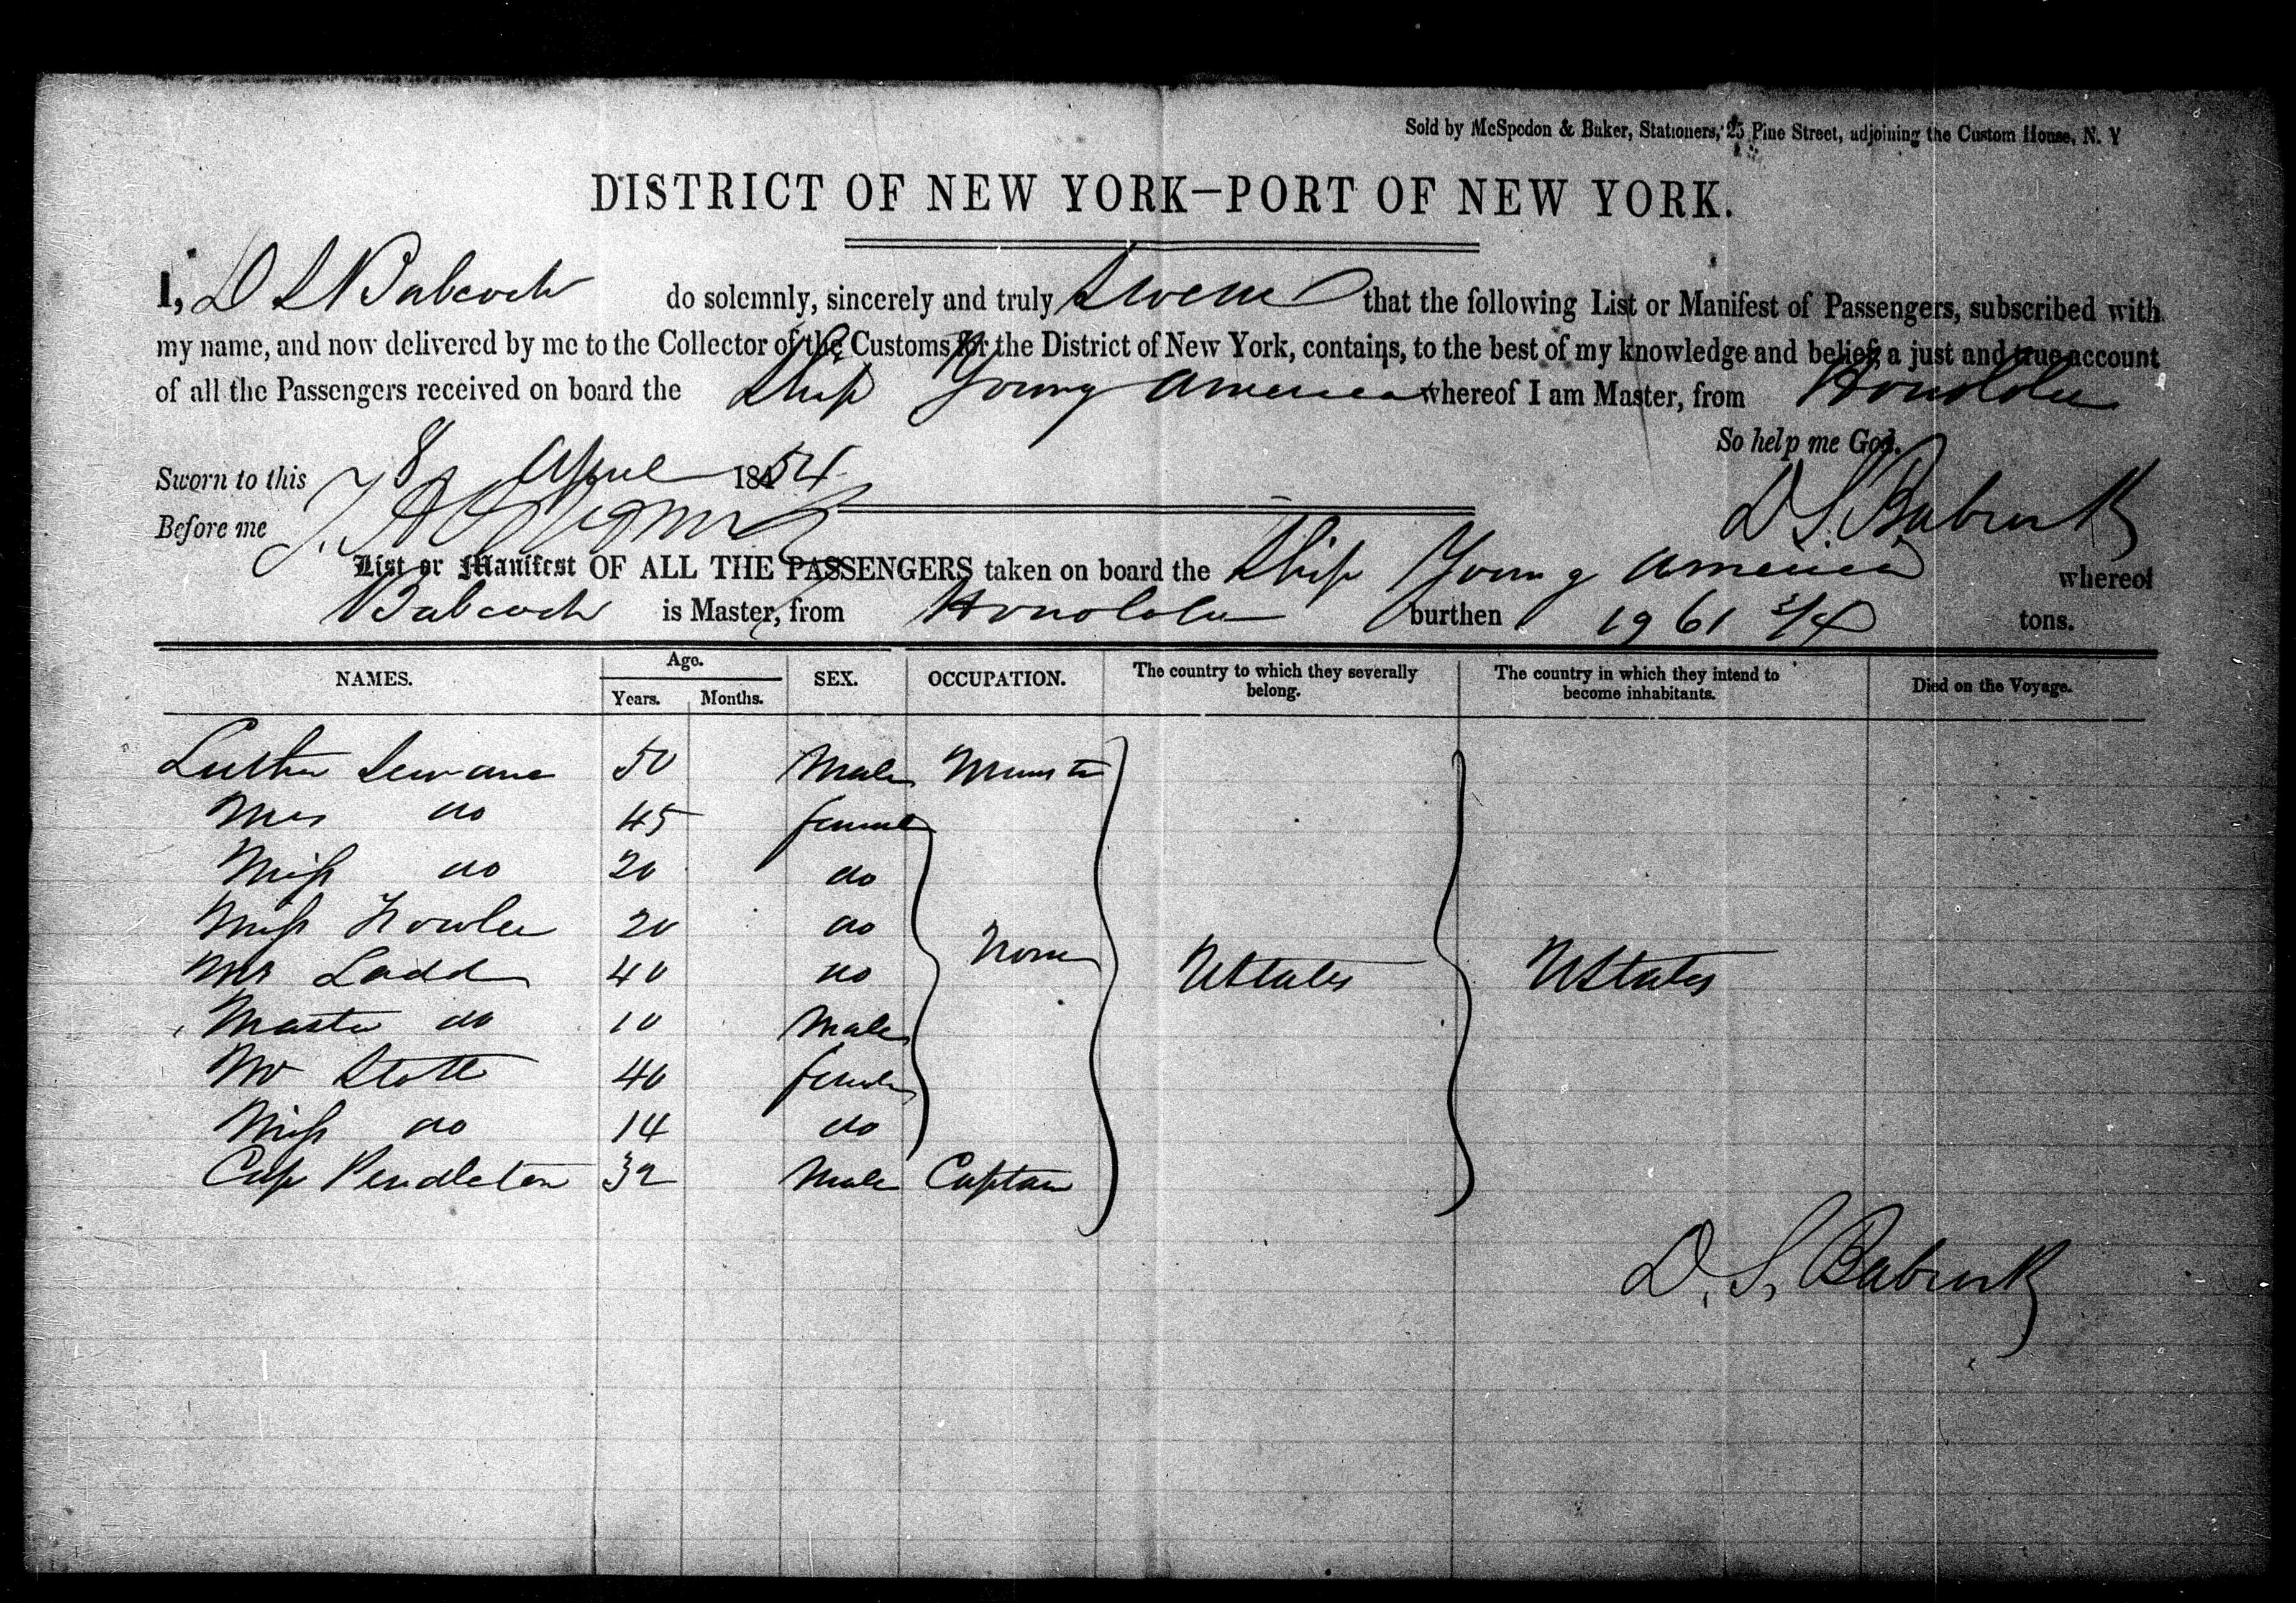 Sold by McSpedon & Baker, Stationers, 25 Pine Street, adjoining the Custom House, N. Y
DISTRICT OF NEW YORK—PORT OF NEW YORK.
I, D S Babcock do solemnly, sincerely and truly Swear that the following List or Manifest of Passengers, subscribed with
my name, and now delivered by me to the Collector of the Customs for the District of New York, contains, to the best of my knowledge and belief, a just and true account
of all the Passengers received on board the Ship Young America whereof I am Master, from Honolulu
So help me God.
Sworn to this 8 April 1854
D S. Babcock
Before me
List or Manifest OF ALL THE PASSENGERS taken on board the Ship Young America whereof
Babcock is Master, from Honolulu burthen 1961 3/4 tons.
NAMES. Age. Years. Months. SEX. OCCUPATION. The country to which they severally belong. The country in which they intend to become inhabitants. Died on the Voyage.
Luther 50 Male Minister
Mrs do 45 female
Miss do 20 do
Miss Fowler 20 do None
Mrs Ladd 40 do UStates UStates
Master do 10 Male
Stott 40 female
Miss do 14 do
Cap Pendleton 32 Male Captain
D. S. Babcock